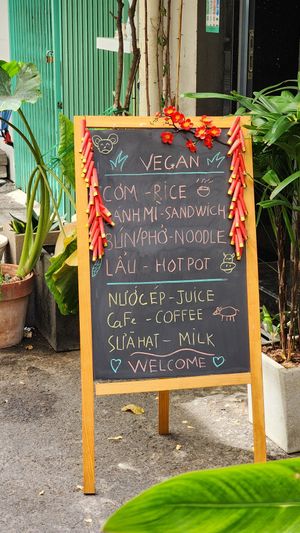 VEGAN
CƠM - RICE
BÁNH MÌ - SANDWICH
BÚN/PHỞ - NOODLE
LẨU - HOT POT
NƯỚC ÉP - JUICE
CaFe - COFFEE
SỮA HẠT - MILK
WELCOME